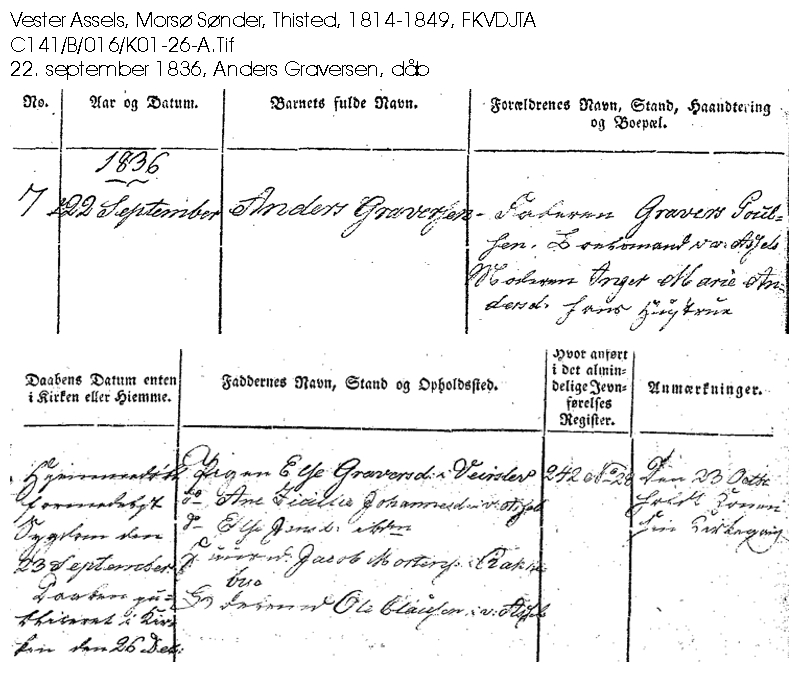 Vester Assels, Morsø Sønder, Thisted, 1814-1849, FKVDJTA
C141/B/016/K01-26-A.Tif
22. september 1836, Anders Graversen, dåb
No.
Aar og Datum.
Barnets fulde Navn.
Forældrenes Navn, Stand, Haandtering
og Boepæl.
1836
7
22 September
Anders Graversen
Faderen Gravers Poul-
sen. Boelsmand v: Assels
Moderen Inger Marie An-
dersd. hans Hustrue
Daabens Datum enten
i Kirken eller Hiemme.
Faddernes Navn, Stand og Opholdssted.
Hvor anført
i det almin-
delige Jevn-
førelses
Register.
Anmærkninger.
Hjemmedøbt
formedelst
Sygdom den
23 September
Daaben pu-
bliceret i Kir-
ken den 26 Dec:
Pigen Else Graversd: i Veirslev
do Ane Johannesd: i v: Assels
do Else Jensd: ibdm
Jacob Mortens:
Ole Clausen i v: Assels
242 No 28
Den 23 Octbr
holdt Konen
sin Kirkegang